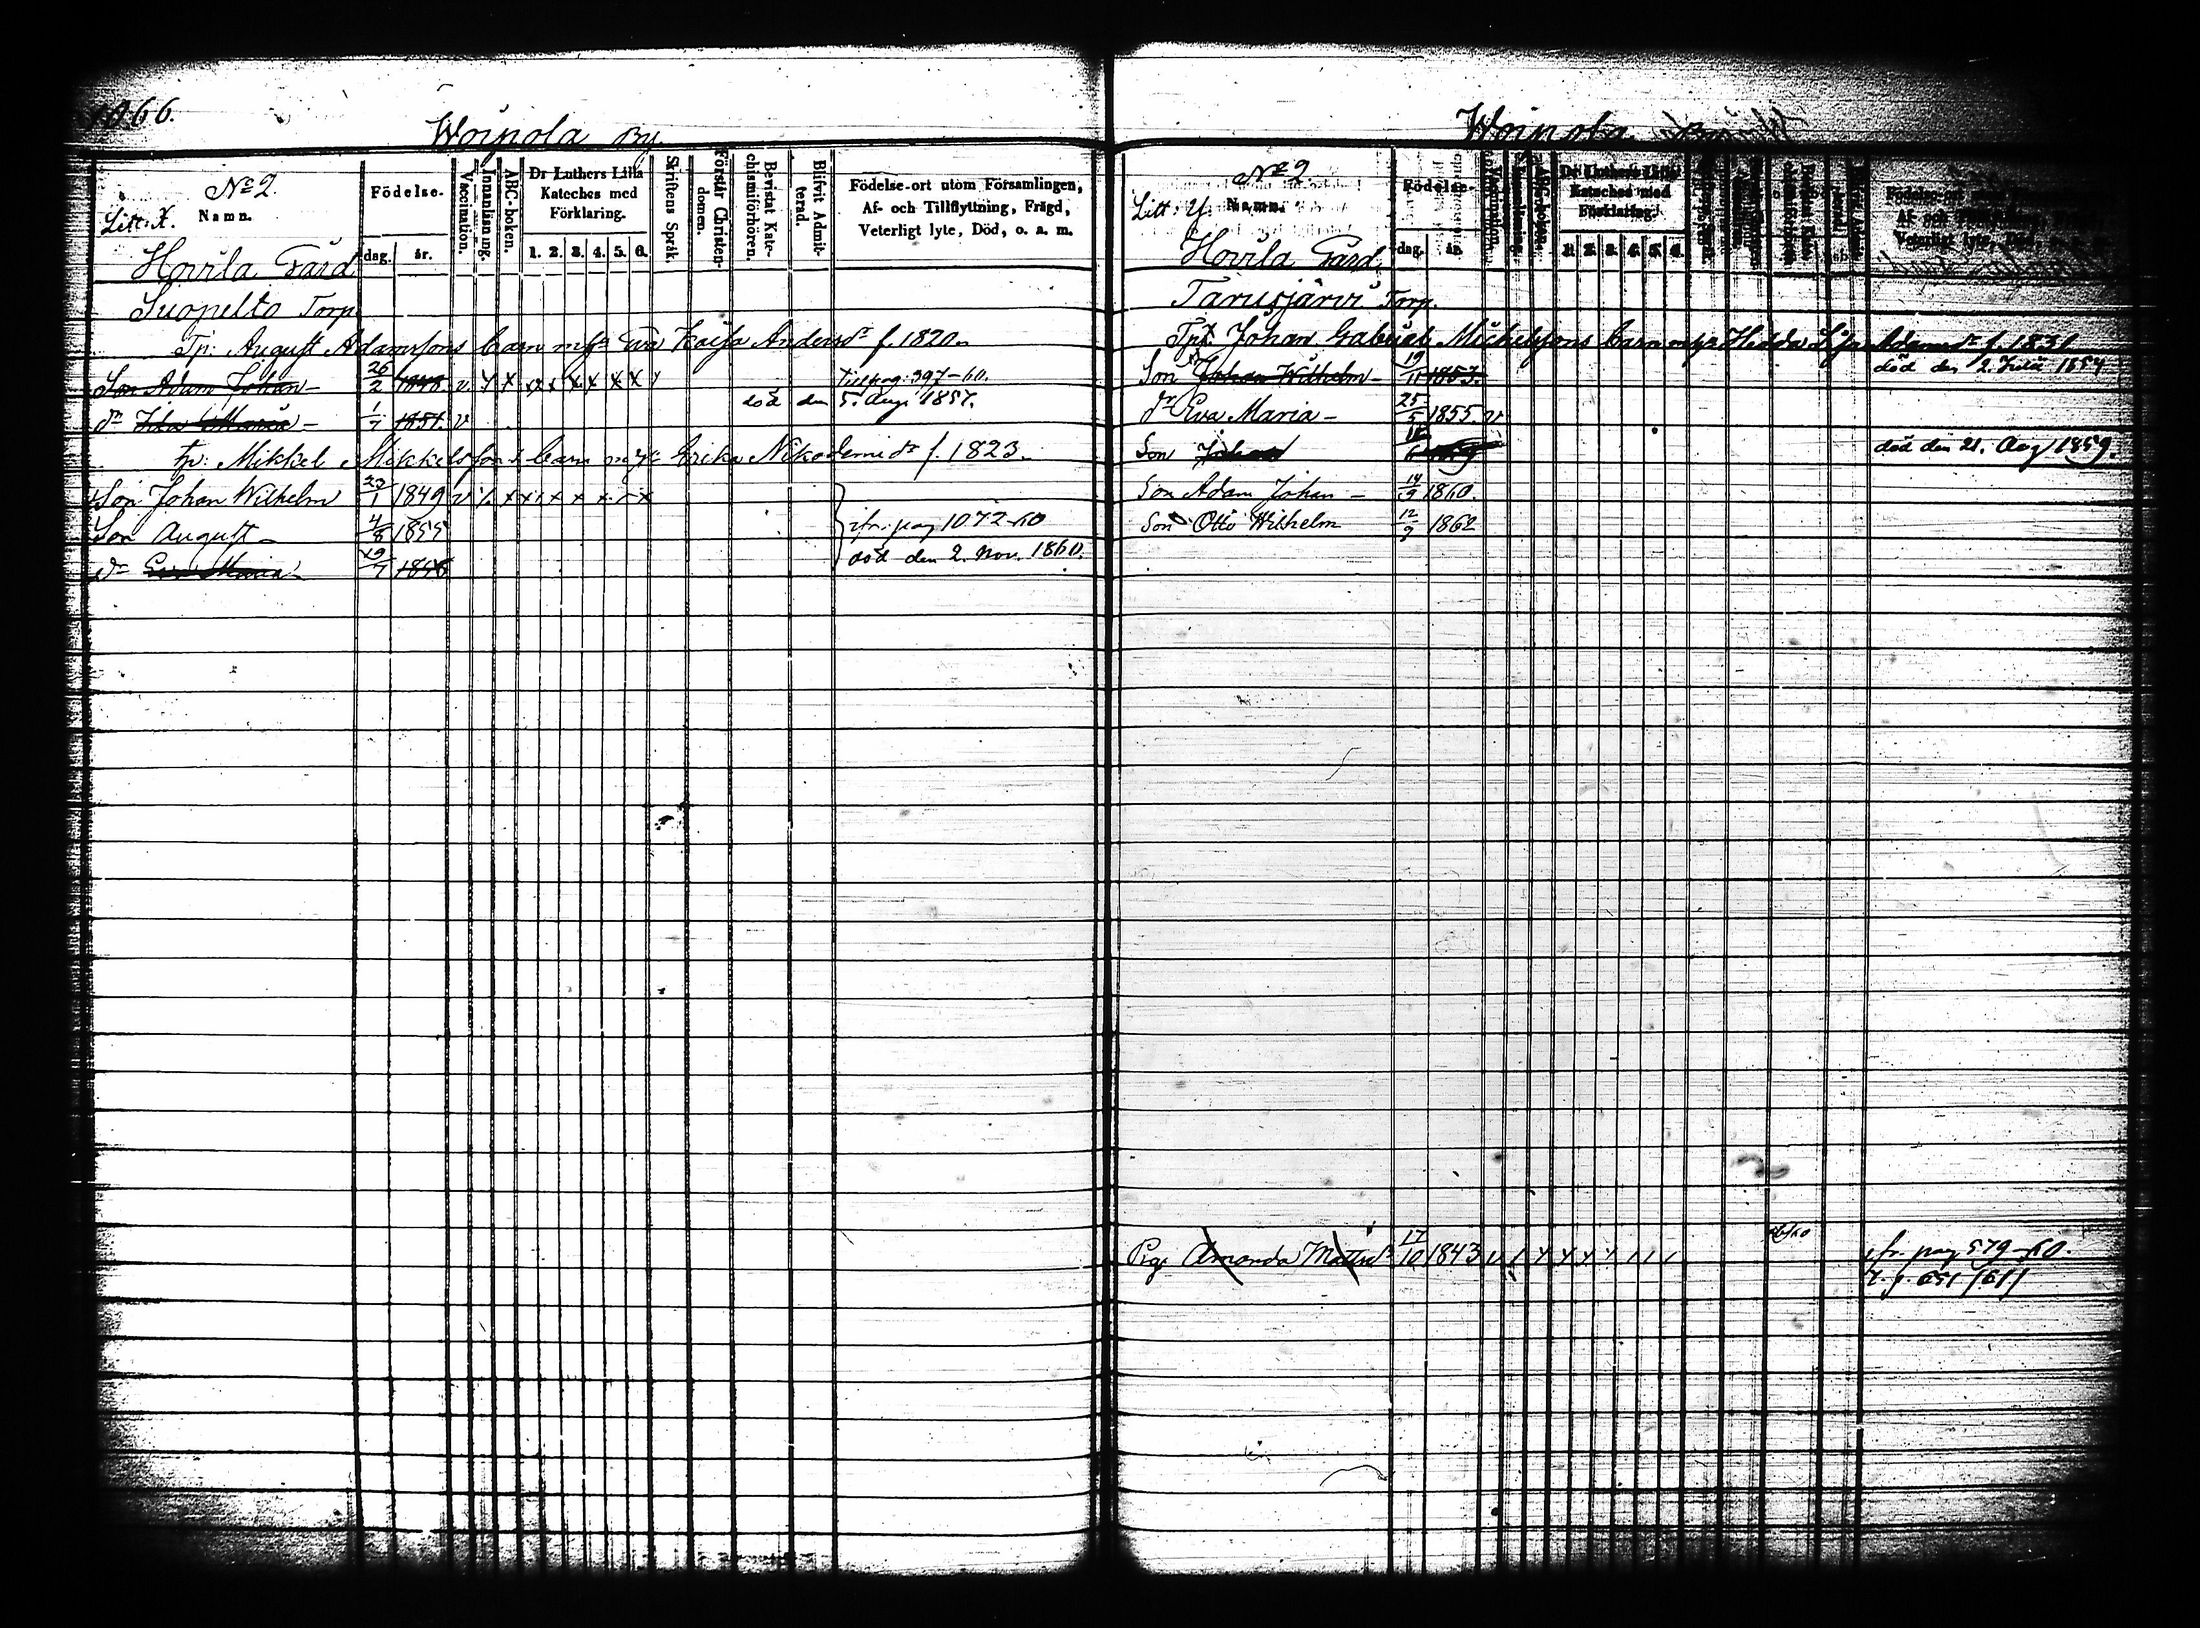 1066.
Woipola By.
No 2.
Litt. X.
Namn.
Födelse-
dag. år.
Vaccination.
Innanläsning.
ABC-boken.
Dr Luthers Lilla Kateches med Förklaring.
1. 2. 3. 4. 5. 6.
Skriftens Språk.
Förstår Christendomen.
Bevistat Katechismiförhören.
Blifvit Admitterad.
Födelse-ort utom Församlingen,
Af- och Tillflyttning, Frägd,
Veterligt lyte, Död, o. a. m.
Hovila Gård
Suopelto Torp
Tp: August Adamssons barn m. Eva Kaisa Andersdr f. 1820.
Son Adam Johan - 26/2 1848 v
Till pag: 397-60.
dr Ida Maria - 1/7 1851. v död den 5. Aug. 1857.
Tp: Mikkel Mikkelssons barn Erika Nikodemidr f. 1823.
Son Johan Wilhelm 23/1 1849 v x x x x x
Son August - 4/8 1855 ifr. pag 1072-60
dr Eva Maria 19/7 1856 död den 2. Nov. 1860.
Woipola By
No 2.
Litt. Y.
Namn.
Födelse-
dag. år.
Dr Luthers Lilla Kateches med Förklaring.
1. 2. 3. 4. 5. 6.
Af- och
Veterligt lyte, Död, o. a. m.
Hovila Gård
Tarusjärvi Torp.
Johan Gabriel Michelssons barn Hedda Adamsdr f. 1831
Son Johan Wilhelm - 19/11 1853. död den 2. Julii 1854
dr Eva Maria - 25/5 1855. v
Son Johan död den 21. Aug 1859.
Son Adam Johan - 14/9 1860.
Son Otto Wilhelm 12/9 1862
Pig. Amanda Mattsdr 17/10 1843 ifr. pag 579-60.